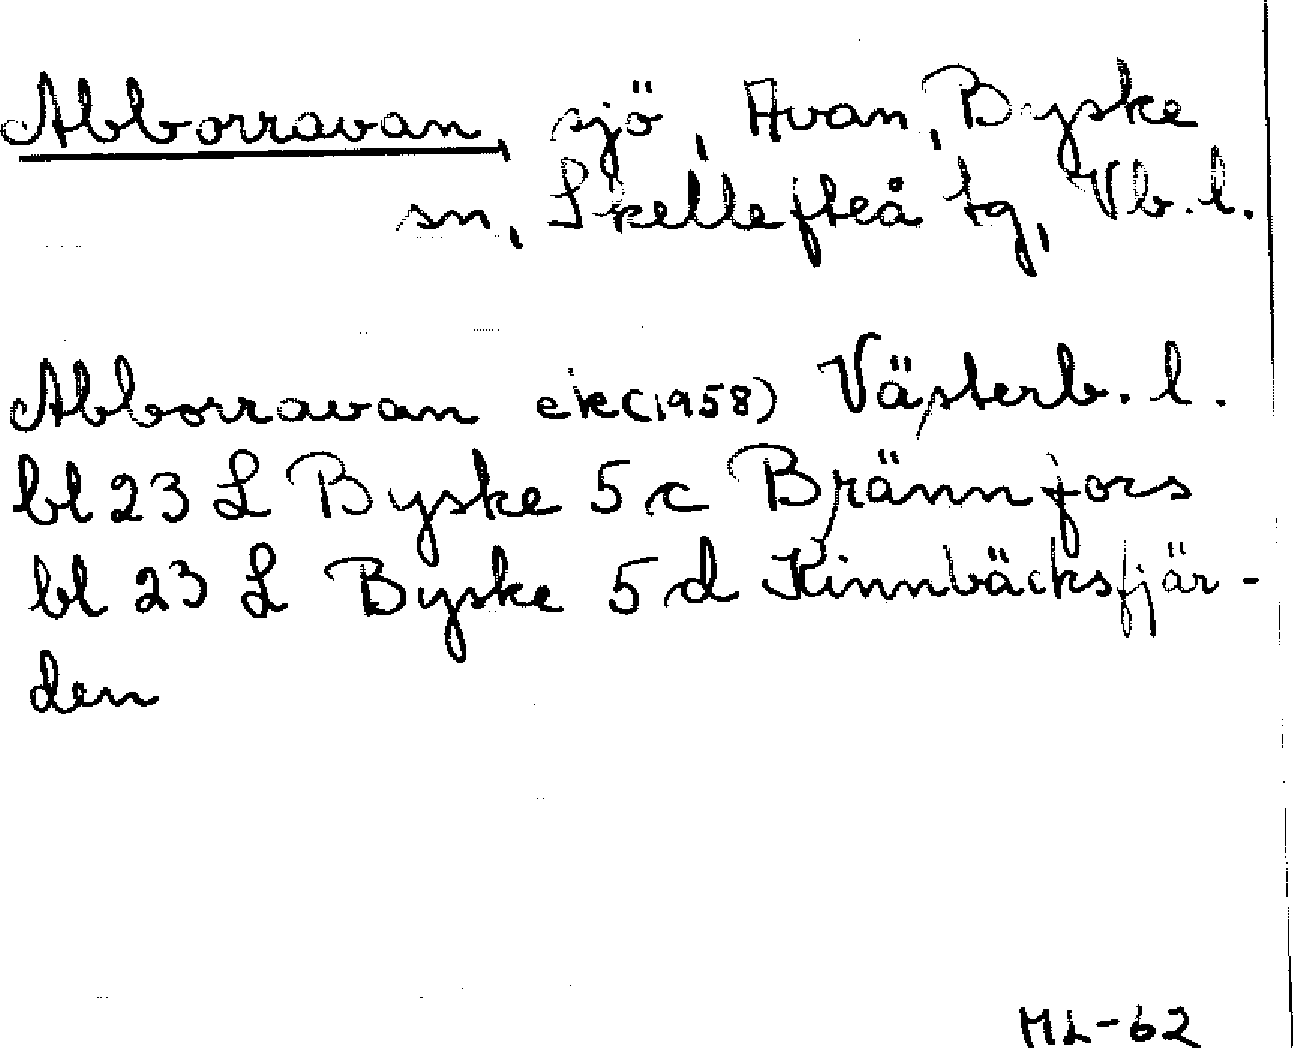 Abborravan, sjö, Avan, Byske
sn, Skellefteå tg, Vb. l.
Abborravan ek (1958) Västerb. l.
bl 23 L Byske 5 c Brännfors
bl 23 L Byske 5 d Kinnbäcksfjär-
den
ML-62